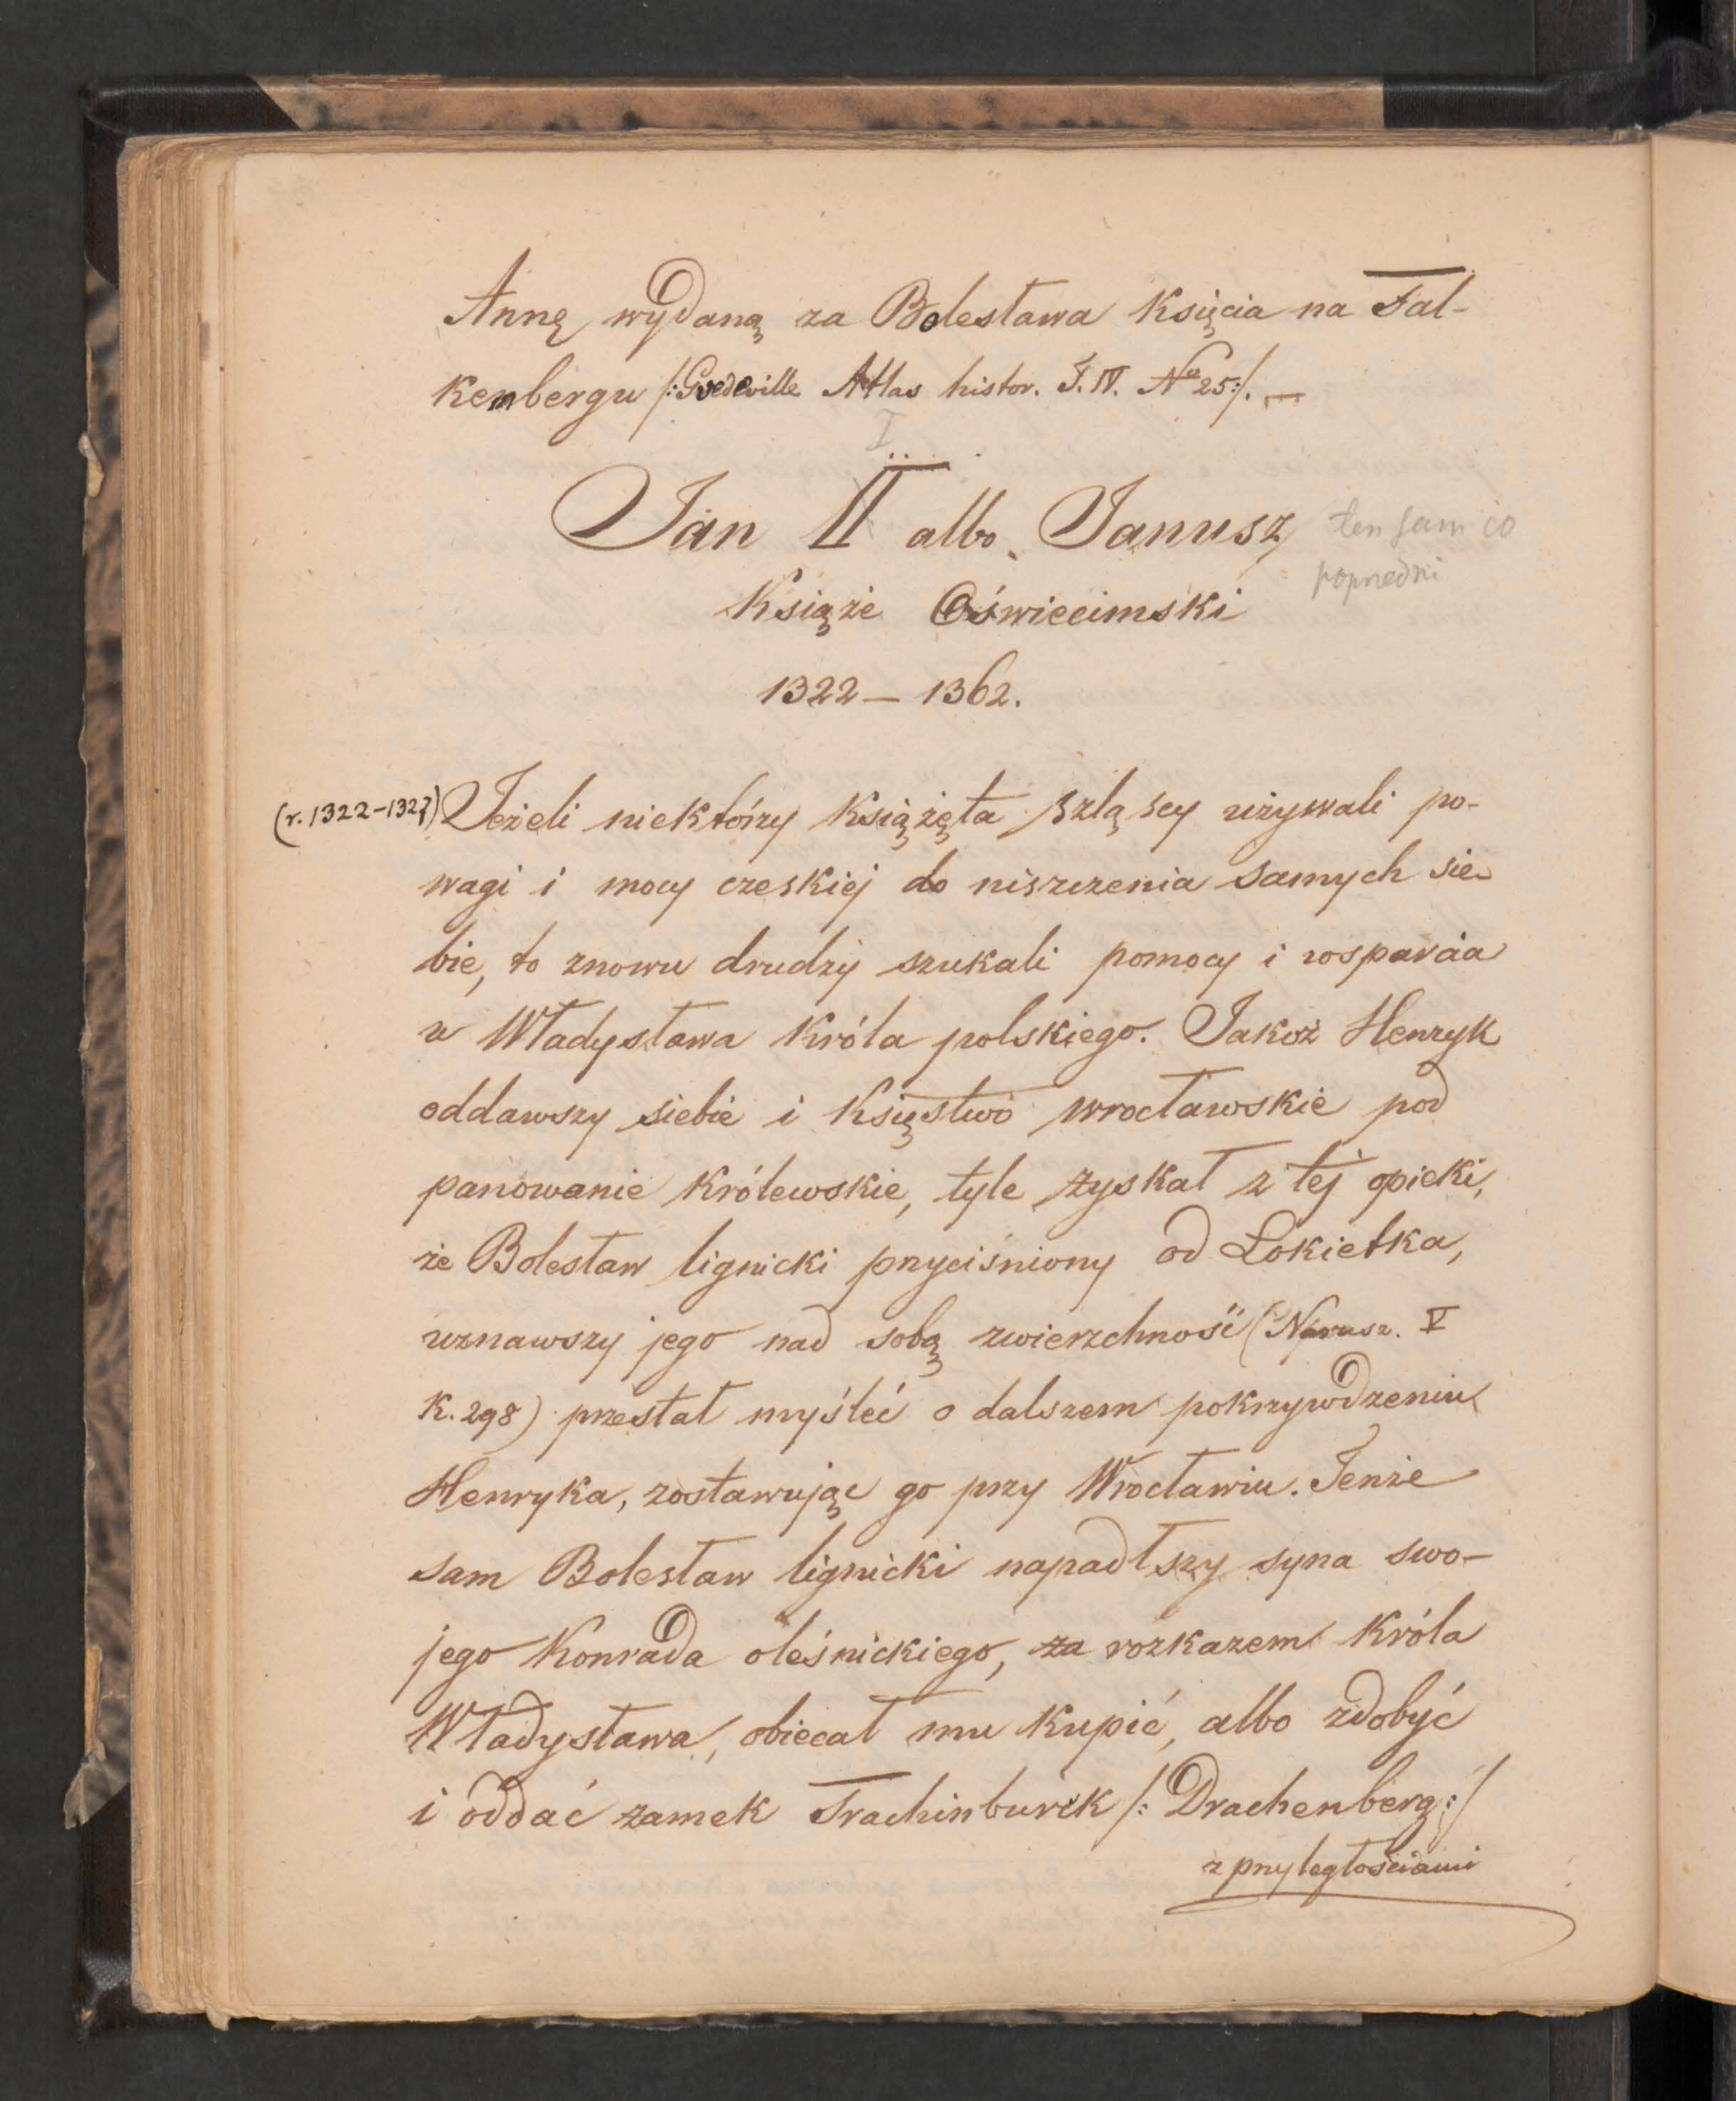 Annę wydaną za Bolesława Księcia na Fal-
kenbergu /: Guedeville Atlas histor. T. IV. No 25 :/. —
I
Jan II albo Janusz
ten sam co
poprzedni
Książe Oświecimski
1322 — 1362.
(r. 1322-1327) Jeżeli niektórzy Książęta szląscy używali po-
wagi i mocy czeskiej do niszczenia samych sie-
bie, to znowu drudzy szukali pomocy i wsparcia
u Władysława Króla polskiego. Jakoż Henryk
oddawszy siebie i Księstwo wrocławskie pod
panowanie Królewskie, tyle zyskał z tej opieki,
że Bolesław lignicki przyciśniony od Łokietka,
uznawszy jego nad sobą zwierzchność (Narusz. V
K. 298) przestał myśleć o dalszem pokrzywdzeniu
Henryka, zostawując go przy Wrocławiu. Tenże
sam Bolesław lignicki napadłszy syna swo-
jego Konrada oleśnickiego, za rozkazem Króla
Władysława, obiecał mu kupić, albo zdobyć
i oddać zamek Trachinburck /: Drachenberg :/
z przyległościami